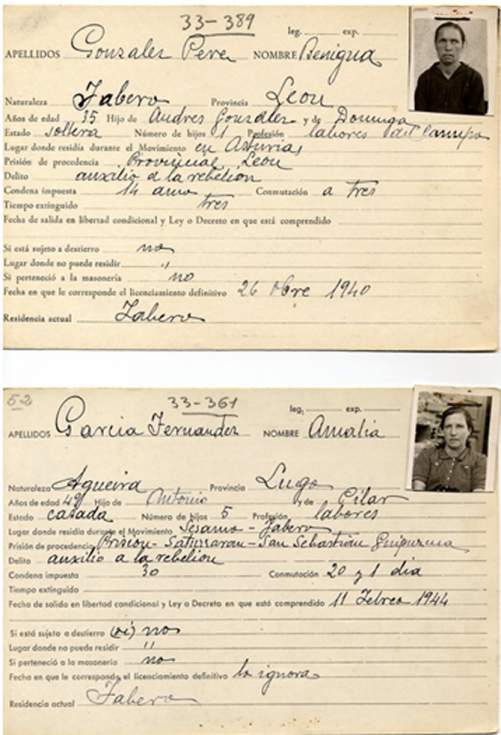 33-389
leg. exp.
APELLIDOS Gonzalez Pere NOMBRE Benigna
Naturaleza Fabero Provincia Leon
Años de edad 35 Hijo de Andres Gonzalez y de Dominga
Estado soltera Número de hijos 1 Profesión labores del Campo
Lugar donde residía durante el Movimiento en Asturias
Prisión de procedencia Provincial Leon
Delito auxilio a la rebelion
Condena impuesta 14 años Conmutación a tres
Tiempo extinguido tres
Fecha de salida en libertad condicional y Ley o Decreto en que está comprendido
Si está sujeto a destierro no
Lugar donde no puede residir "
Si perteneció a la masonería no
Fecha en que le corresponde el licenciamiento definitivo 26 obre 1940
Residencia actual Fabero
52
33-361
leg. exp.
APELLIDOS Garcia Fernandez NOMBRE Amalia
Naturaleza Aqueira Provincia Lugo
Años de edad 49 Hijo de Antonio y de Pilar
Estado casada Número de hijos 5 Profesión labores
Lugar donde residía durante el Movimiento Sesamo - Fabero
Prisión de procedencia Prision - Saturraran - San Sebastián Guipuzcua
Delito auxilio a la rebelion
Condena impuesta 30 Conmutación 20 y 1 dia
Tiempo extinguido
Fecha de salida en libertad condicional y Ley o Decreto en que está comprendido 11 Febreo 1944
Si está sujeto a destierro no
Lugar donde no puede residir "
Si perteneció a la masonería no
Fecha en que le corresponde el licenciamiento definitivo lo ignora
Residencia actual Fabero